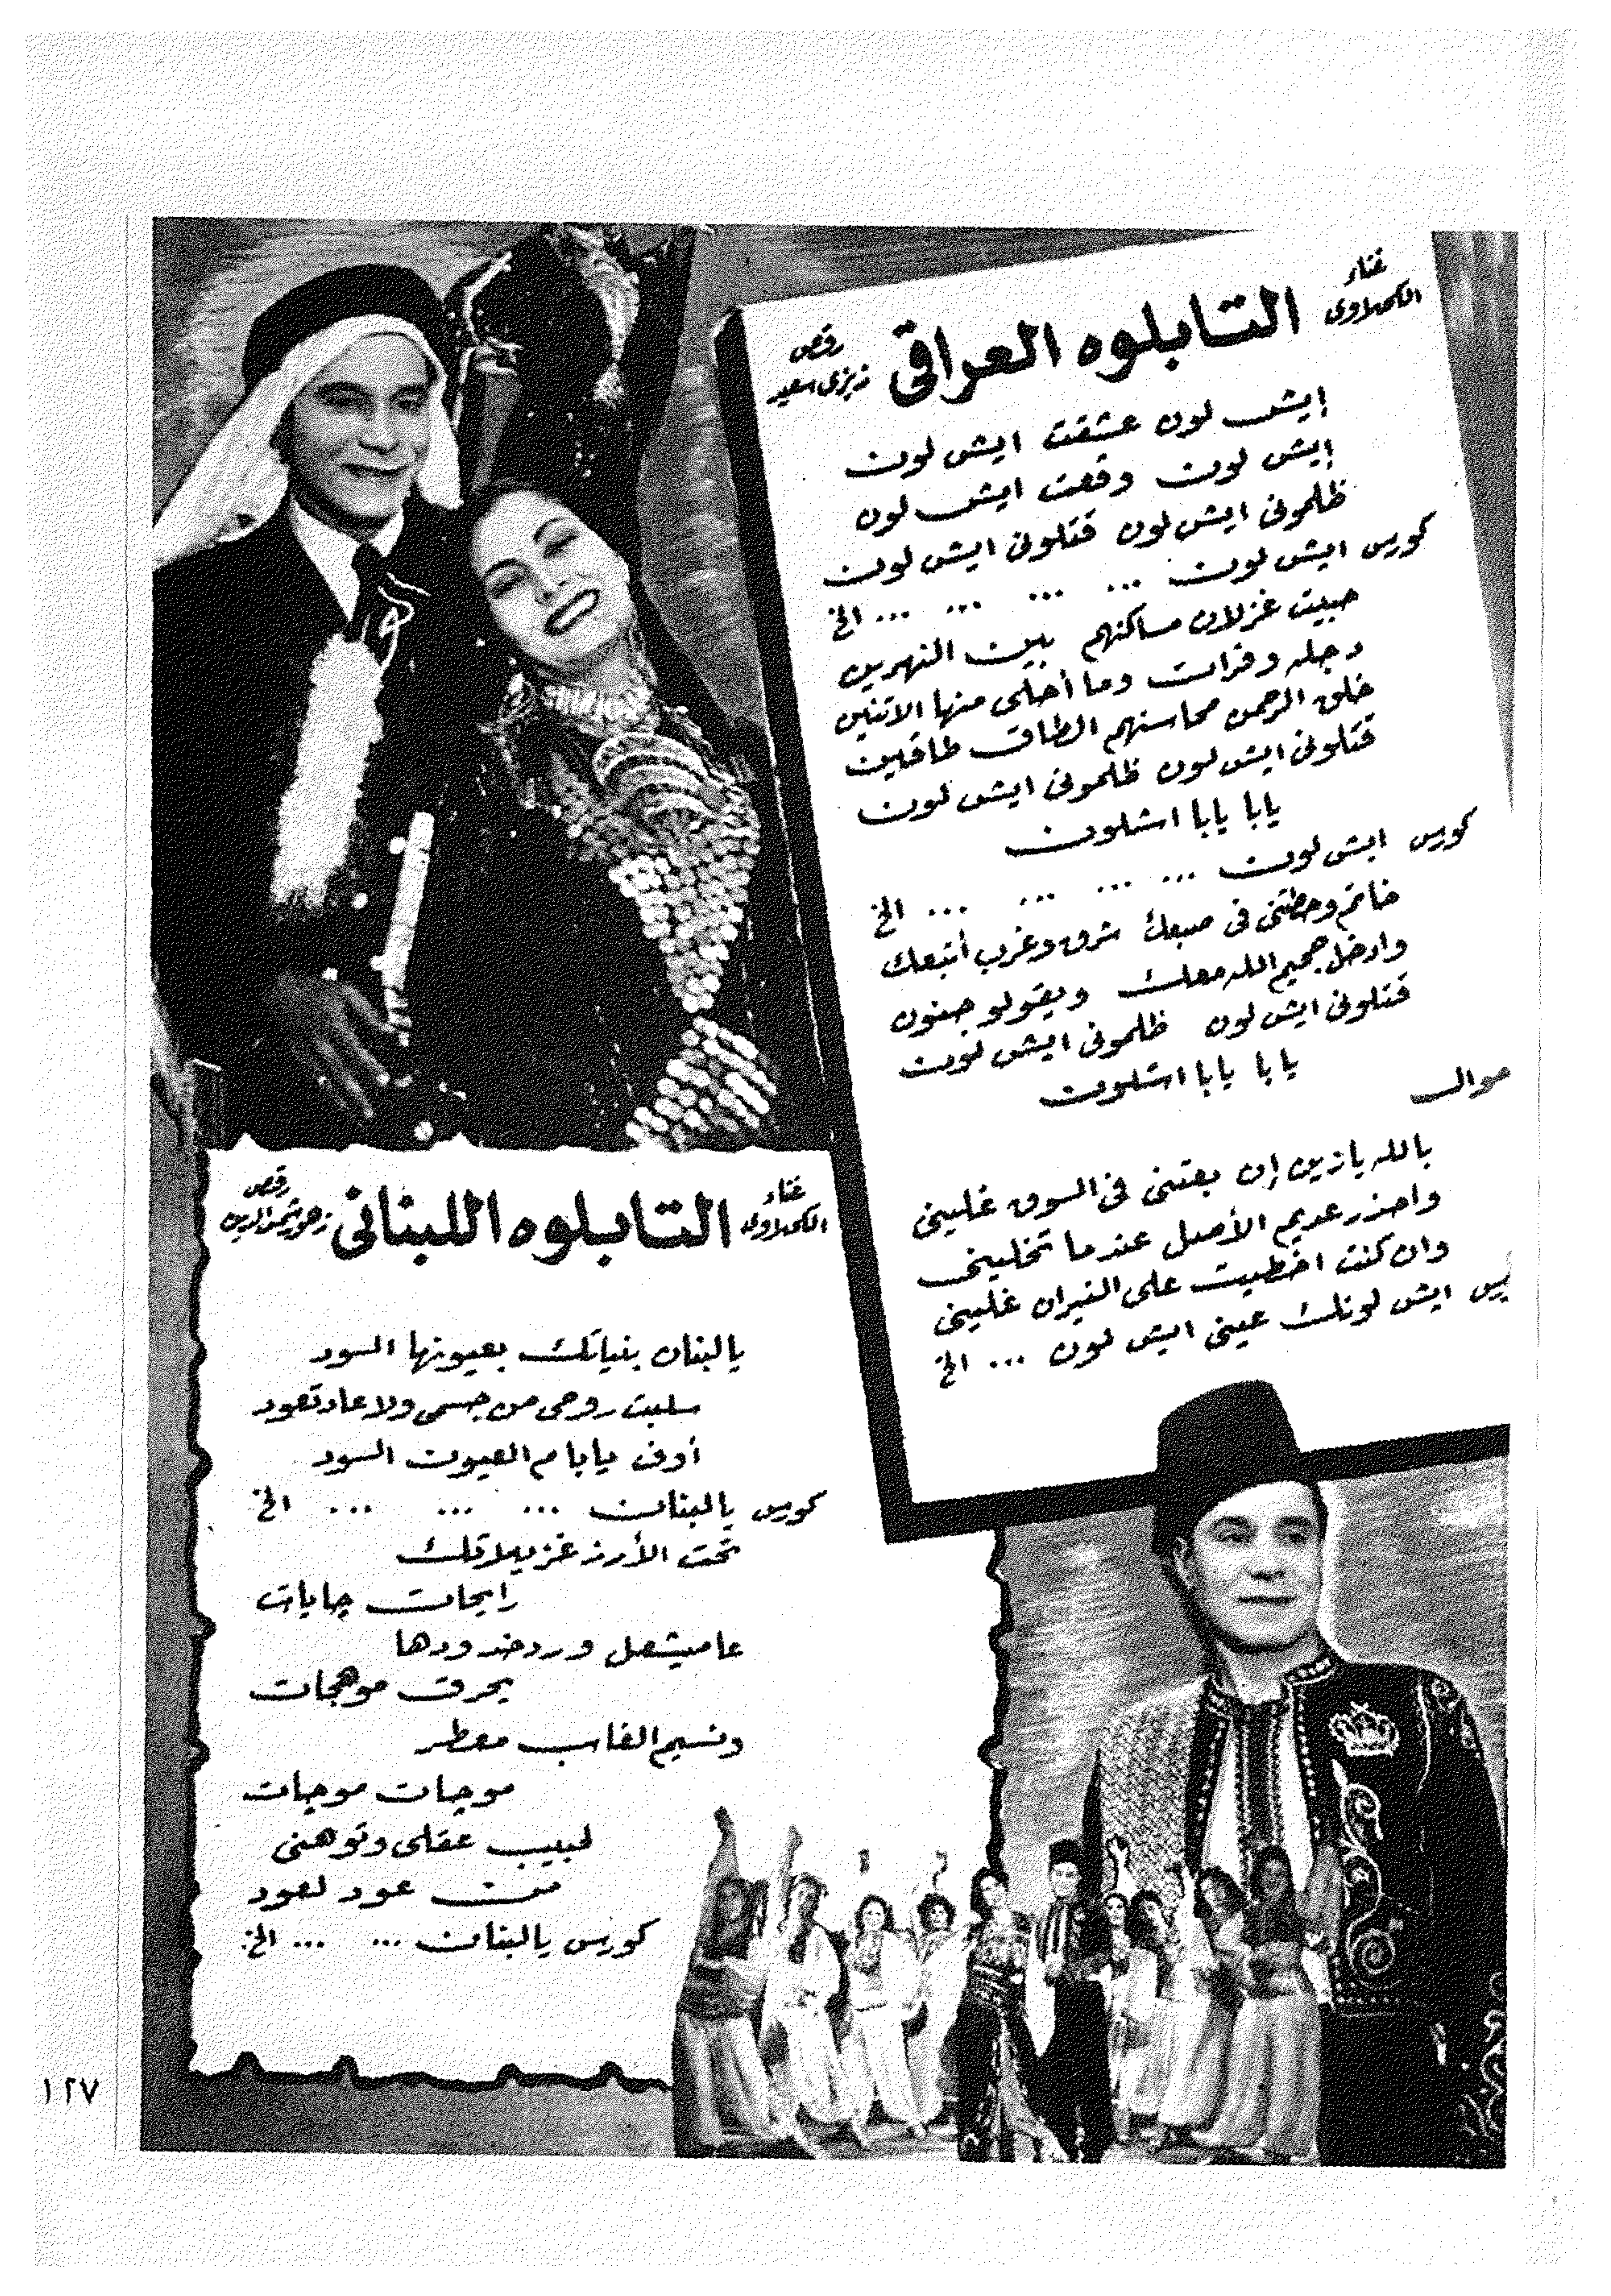 غناء
الكحلاوى
التابلوه العراقي
رقص
سعيد
إيش لون عشقت ايش لون
إيش لون وقعت ايش لون
ظلمونى ايش لون قتلونى ايش لون
كورس ايش لون ... ... ... ... الخ
حبيت غزلان مساكنهم بين النهرين
دجله وفرات وما أحلى منها الاتنين
خلق الرحمن محاسنهم الطاق طاقين
قتلونى ايش لون ظلمونى ايش لون
يابا يابا اشلون
كورس ايش لون ... ... ... ... الخ
خاتم وحطتنى فى صبعك شرق وغرب أتبعك
وادخل جحيم الله معك ويقولو جنون
قتلونى ايش لون ظلمونى ايش لون
يابا يابا اشلون
موال
بالله يازين إن بعتنى فى السوق غلينى
واحذر عديم الأصل عندما تخلينى
وان كنت اخطيت على النيران غلينى
ايش لونك عينى ايش لون ... الخ
غناء
الكحلاوى
التابلوه اللبنانى
رقص
يالبنان بنياتك بعيونها السود
سلبت روحى من جسمى ولا عاد تعود
أوف يابا م العيون السود
كورس يالبنان ... ... ... الخ
تحت الأرز غزيلاتك
رايحات جايات
عاميشعل ورد خدودها
يحرق موهجات
ونسيم الغاب معطر
موجات موجات
لبيب عقلى وتوهنى
من عود لعود
كورس يالبنان ... ... الخ
١٢٧